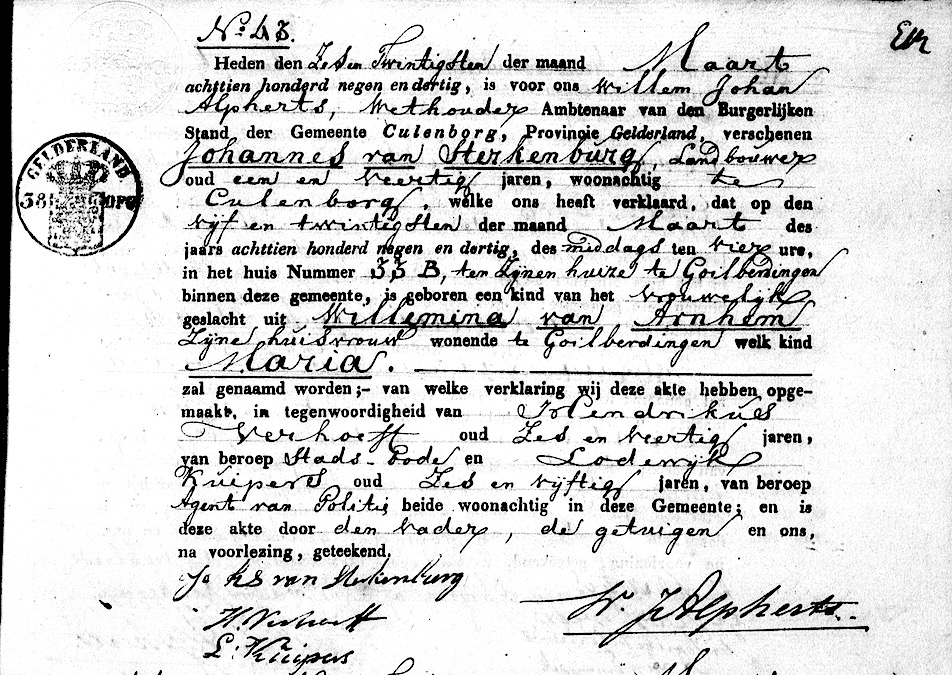 No. 43.
Heden den Zes en Twintigsten der maand Maart
achttien honderd negen en dertig, is voor ons Willem Johan
Alpherts, Wethouder Ambtenaar van den Burgerlijken
Stand der Gemeente Culenborg, Provincie Gelderland, verschenen
Johannes van Sterkenburg, Landbouwer
oud een en Veertig jaren, woonachtig te
Culenborg, welke ons heeft verklaard, dat op den
vijf en twintigsten der maand Maart des
jaars achttien honderd negen en dertig, des middags ten vier ure,
in het huis Nummer 33 B, ten Zijnen huize te Goilberdingen
binnen deze gemeente, is geboren een kind van het vrouwelijk
geslacht uit Willemina van Arnhem
Zijne huisvrouw wonende te Goilberdingen welk kind
Maria.
zal genaamd worden;- van welke verklaring wij deze akte hebben opge-
maakt, in tegenwoordigheid van Hendrikus
Verhoeff oud Zes en Veertig jaren,
van beroep Stads-Bode en Lodewijk
Kuipers oud Zes en vijftig jaren, van beroep
Agent van Politie beide woonachtig in deze Gemeente; en is
deze akte door den vader, de getuigen en ons,
na voorlezing, geteekend.
van Sterkenburg
H. Verhoeff
W. J. Alpherts
L. Kuipers
GELDERLAND
38